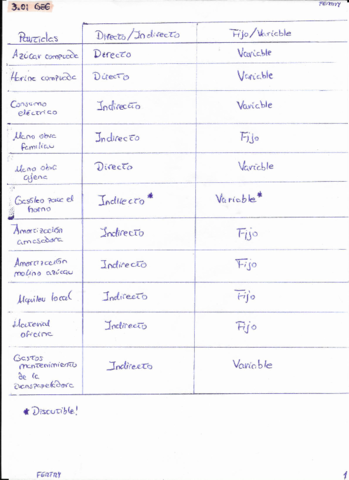 3.01 GEC
FEATHY
Partidas Directo/Indirecto Fijo/Variable
Azúcar comprada Directo Variable
Harina comprada Directo Variable
Consumo
eléctrico Indirecto Variable
Mano obra
familiar Indirecto Fijo
Mano obra
ajena Directo Variable
Gasóleo para el
horno Indirecto* Variable*
Amortización
amasadora Indirecto Fijo
Amortización
molino azúcar Indirecto Fijo
Alquiler local Indirecto Fijo
Material
oficina Indirecto Fijo
Gastos
mantenimiento
de la
transportadora Indirecto Variable
* Discutible!
FEATHY 1